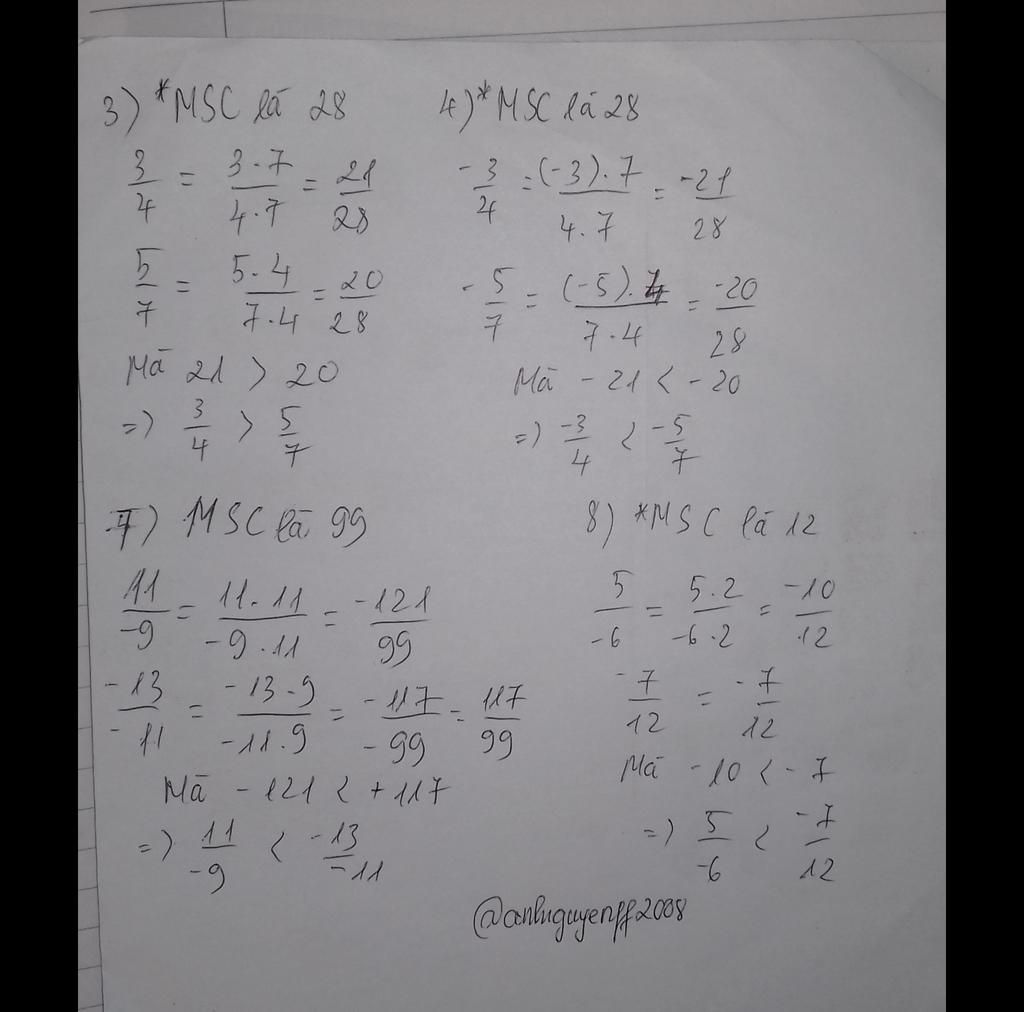 3) *MSC là 28
3/4 = 3·7/4·7 = 21/28
5/7 = 5·4/7·4 = 20/28
Mà 21 > 20
=> 3/4 > 5/7
4) *MSC là 28
-3/4 = (-3).7/4.7 = -21/28
-5/7 = (-5).4/7·4 = -20/28
Mà -21 < -20
=> -3/4 < -5/7
7) MSC là 99
11/-9 = 11·11/-9·11 = -121/99
-13/-11 = -13·9/-11.9 = -117/-99 = 117/99
Mà -121 < +117
=> 11/-9 < -13/-11
8) *MSC là 12
5/-6 = 5.2/-6·2 = -10/12
-7/12 = -7/12
Mà -10 < -7
=> 5/-6 < -7/12
@anhnguyenff2008